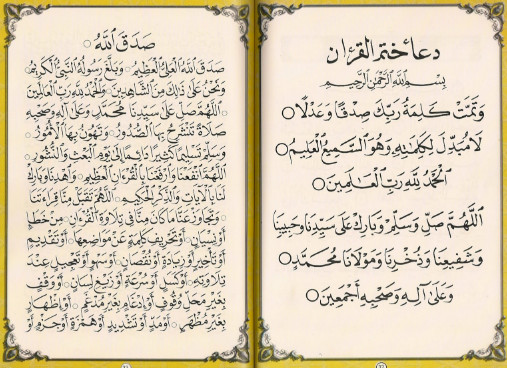 دعاء ختم القرءان
بِسْمِ اللَّهِ الرَّحْمَنِ الرَّحِيمِ
وَتَمَّتْ كَلِمَةُ رَبِّكَ صِدْقًا وَعَدْلًا ○
لَا مُبَدِّلَ لِكَلِمَاتِهِ وَهُوَ السَّمِيعُ الْعَلِيمُ ○
الْحَمْدُ لِلَّهِ رَبِّ الْعَالَمِينَ ○
اللَّهُمَّ صَلِّ وَسَلِّمْ وَبَارِكْ عَلَى سَيِّدِنَا وَحَبِيبِنَا
وَشَفِيعِنَا وَذُخْرِنَا وَمَوْلَانَا مُحَمَّدٍ ○
وَعَلَى آلِهِ وَصَحْبِهِ أَجْمَعِينَ ○
صَدَقَ اللَّهُ ○
صَدَقَ اللَّهُ الْعَلِيُّ الْعَظِيمُ ○ وَبَلَّغَ رَسُولُهُ النَّبِيُّ الْكَرِيمُ ○
وَنَحْنُ عَلَى ذَلِكَ مِنَ الشَّاهِدِينَ ○ وَالْحَمْدُ لِلَّهِ رَبِّ الْعَالَمِينَ
○ اللَّهُمَّ صَلِّ عَلَى سَيِّدِنَا مُحَمَّدٍ وَعَلَى آلِهِ وَصَحْبِهِ
صَلَاةً تَنْشَرِحُ بِهَا الصُّدُورُ ○ وَتَهُونُ بِهَا الْأُمُورُ ○
وَسَلِّمْ تَسْلِيمًا كَثِيرًا دَائِمًا إِلَى يَوْمِ الْبَعْثِ وَالنُّشُورِ ○
اللَّهُمَّ انْفَعْنَا وَارْفَعْنَا بِالْقُرْءَانِ الْعَظِيمِ ○ وَاهْدِنَا وَبَارِكْ
لَنَا بِالْآيَاتِ وَالذِّكْرِ الْحَكِيمِ ○ اللَّهُمَّ تَقَبَّلْ مِنَّا قِرَاءَتَنَا
○ وَتَجَاوَزْ عَنَّا مَا كَانَ مِنَّا فِي تِلَاوَةِ الْقُرْءَانِ ○ مِنْ خَطَإٍ
أَوْ نِسْيَانٍ ○ أَوْ تَحْرِيفِ كَلِمَةٍ عَنْ مَوَاضِعِهَا ○ أَوْ تَقْدِيمٍ
أَوْ تَأْخِيرٍ أَوْ زِيَادَةٍ أَوْ نُقْصَانٍ ○ أَوْ سَهْوٍ أَوْ تَعْجِيلٍ عِنْدَ
تِلَاوَتِهِ ○ أَوْ كَسَلٍ أَوْ سُرْعَةٍ أَوْ زَيْغِ لِسَانٍ ○ أَوْ وَقْفٍ
بِغَيْرِ مَحَلِّ وُقُوفٍ أَوْ إِدْغَامٍ بِغَيْرِ مُدْغَمٍ ○ أَوْ إِظْهَارٍ
بِغَيْرِ مُظْهَرٍ ○ أَوْ مَدٍّ أَوْ تَشْدِيدٍ أَوْ هَمْزَةٍ أَوْ جَزْمٍ أَوْ